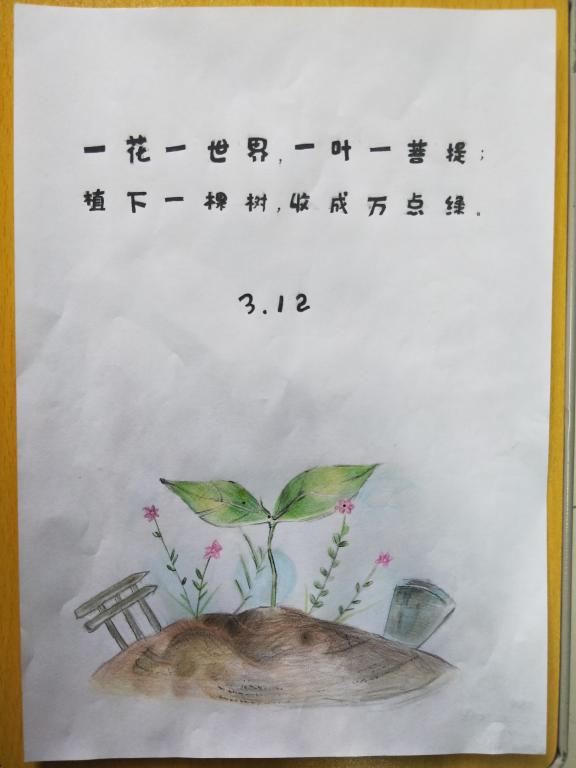 一花一世界，一叶一菩提；
植下一棵树，收成万点绿。
3.12